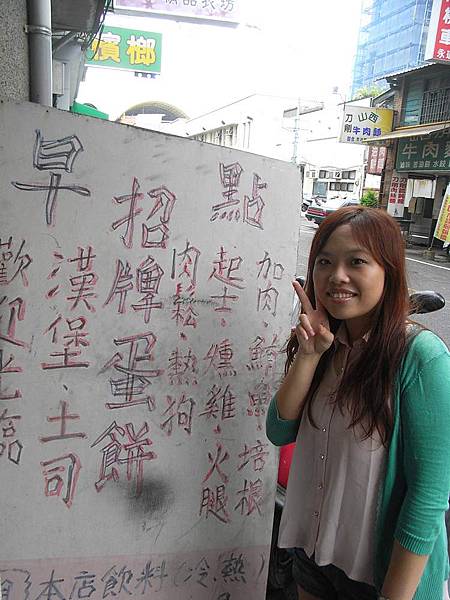 檳榔
山西
刀削
牛肉麵
牛肉麵
早點
加肉、鮪魚、培根
起士、燻雞、火腿
肉鬆、熱狗
招牌蛋餅
漢堡、土司
歡迎光臨
本店飲料(冷.熱)